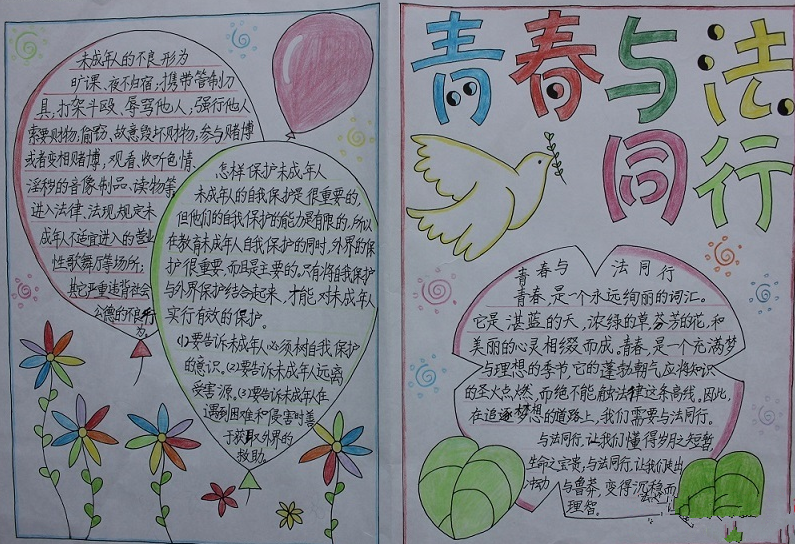 未成年人的不良形为
旷课、夜不归宿,携带管制刀
具,打架斗殴、辱骂他人,强行他人
索要财物,偷野,故意毁坏财物,参与赌博
或者变相赌博,观看、收听色情、
淫秽的音像制品、读物等
进入法律、法规规定未
成年人不适宜进入的营业
性歌舞厅等场所;
其它严重违背社会
公德的不良行
为。
怎样保护未成年人
未成年人的自我保护是很重要的,
但他们的自我保护的能力是有限的,所以
在教育未成年人自我保护的同时,外界的保
护很重要,而且是主要的。只有将自我保护
与外界保护结合起来,才能,对未成年人
实行有效的保护。
(1)要告诉未成年人必须树自我保护
的意识。(2)要告诉未成年人远离
受害源。(3)要告诉未成年人在
遇到困难和侵害时善
于获取外界的
救助。
青春与法
同行
青春与 法同行
青春,是一个永远绚丽的词汇。
它是湛蓝的天,浓绿的草芬芳的花,和
美丽的心灵相缀而成。青春,是一个充满梦
与理想的季节,它的蓬勃朝气应将知识
的圣火点燃,而绝不能触法律这条高线。因此,
在追逐梦想的道路上,我们需要与法同行。
与法同行,让我们懂得岁月之短暂,
生命之宝贵,与法同行,让我们走出
冲动 与鲁莽,变得沉稳而
理智。